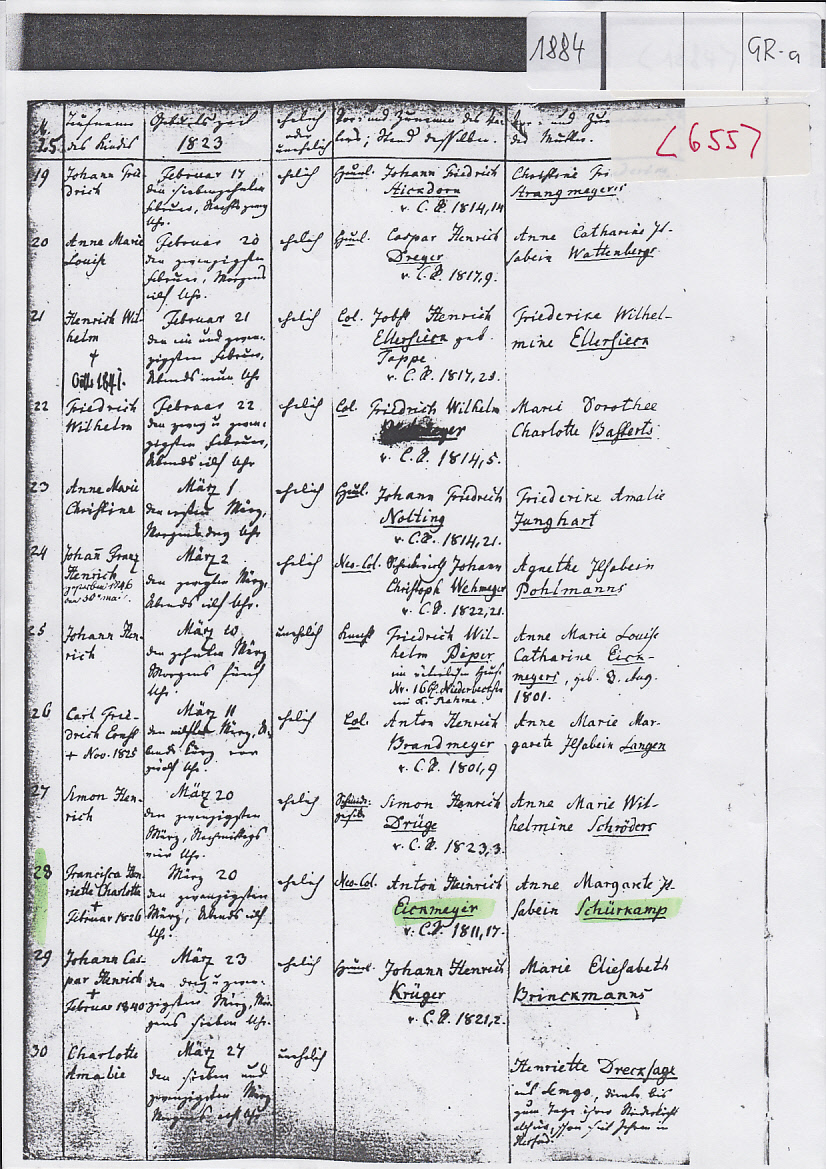 1884
GR-a
(655)
N.
25.
Taufname
des Kindes
Geburtszeit
1823
ehelich
oder
unehelich
Vor und Zuname des Va-
ters; Stand desselben.
Vor und Zu
der Mutter.
19
Johann Frie-
drich
Februar 17
den siebenzehnten
Februar, Nachts zwey
Uhr.
ehelich
Heuerl. Johann Friedrich
v. C. P. 1814,14
Christine Fri
20
Anne Marie
Louise
Februar 20
den zwanzigsten
Februar, Morgens
eilf Uhr.
ehelich
Heuerl. Caspar Henrich
Dreyer
v. C. P. 1817,9.
Anne Catharine Il-
sabein Wattenbergs
21
Henrich Wil-
helm
†
1841.
Februar 21
den ein und zwan-
zigsten Februar,
Abends neun Uhr
ehelich
Col. Jobst Henrich
Ellersieck geb.
Tappe.
v. C. P. 1817,21.
Friederike Wilhel-
mine Ellersieck
22
Friedrich
Wilhelm
Februar 22
den zwey u zwan-
zigsten Februar,
Abends eilf Uhr
ehelich
Col. Friedrich Wilhelm
v. C. P. 1814,5.
Marie Dorothee
Charlotte Basserts
23
Anne Marie
Christine
März 1
den ersten März,
Morgens drey Uhr
ehelich
Heuerl. Johann Friedrich
Nolting
v. C. P. 1814,21.
Friederike Amalie
Junghart
24
Johañ Franz
Henrich
gestorben 1846
den 30st Mai.
März 2
den zweyten März,
Abends eilf Uhr.
ehelich
Neo-Col. Johann
Christoph Wehmeyer
v. C. P. 1822,21.
Agnethe Ilsabein
Pohlmanns
25
Johann Hen-
rich
März 10
den zehnten März
Morgens fünf
Uhr.
unehelich
Friedrich Wil-
helm Piper
Nr. 16
Anne Marie Louise
Catharine Eick-
meyers, geb. 3. Aug.
1801.
26
Carl Frie-
drich Ernst
† Nov. 1825
März 11
den eilften März, A-
bends kurz vor
zwölf Uhr.
ehelich
Col. Anton Henrich
Brandmeyer
v. C. P. 1801,9
Anne Marie Mar-
garete Ilsabein Langen
27
Simon Hen-
rich
März 20
den zwanzigsten
März, Nachmittags
vier Uhr.
ehelich
Simon Henrich
Drüge
v. C. P. 1823,3.
Anne Marie Wil-
helmine Schröders
28
Francisca Hen-
riette Charlotte
†
Februar 1826
März 20
den zwanzigsten
März, Abends eilf
Uhr.
ehelich
Neo-Col. Anton Heinrich
Eickmeyer
v. C. P. 1811,17.
Anne Margarete Il-
sabein Schürkamp
29
Johann Cas-
par Henrich
†
Februar 1840
März 23
den drey u zwan-
zigsten März, Mor-
gens sieben Uhr.
ehelich
Heuerl. Johann Henrich
Krüger
v. C. P. 1821,2.
Marie Eliesabeth
Brinckmanns
30
Charlotte
Amalie
März 27
den sieben und
zwanzigsten März
Morgens acht Uhr.
unehelich
Henriette Drecksage
aus Lemgo, bis
zum Tage ihrer Niederkunft
seit Jahren in
Herford.